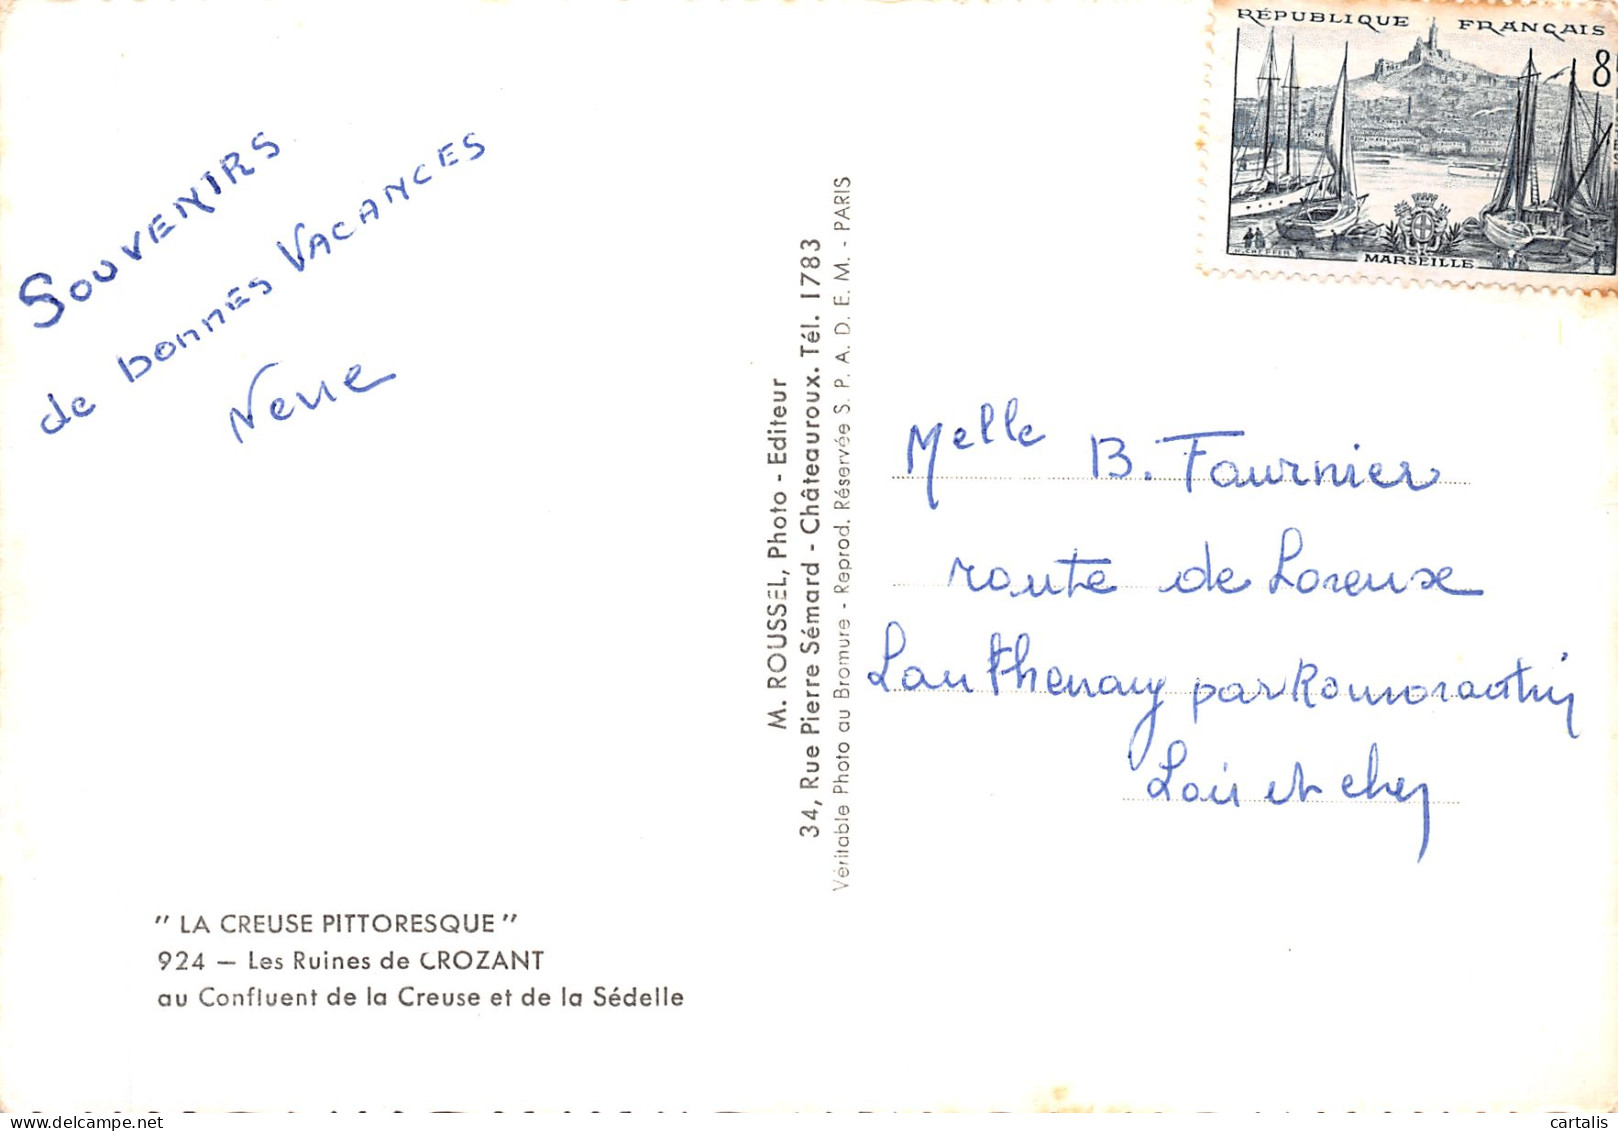 SOUVENIRS
de bonnes VACANCES
RÉPUBLIQUE FRANÇAIS
8
MARSEILLE
M. ROUSSEL, Photo - Editeur
34, Rue Pierre Sémard - Châteauroux. Tél. 1783
Véritable Photo au Bromure - Reprod. Réservée S. P. A. D. E. M. - PARIS
Melle B. Fournier
route de Loreux
Lanthenay par Romorantin
Loir et cher
" LA CREUSE PITTORESQUE "
924 — Les Ruines de CROZANT
au Confluent de la Creuse et de la Sédelle
cartalis